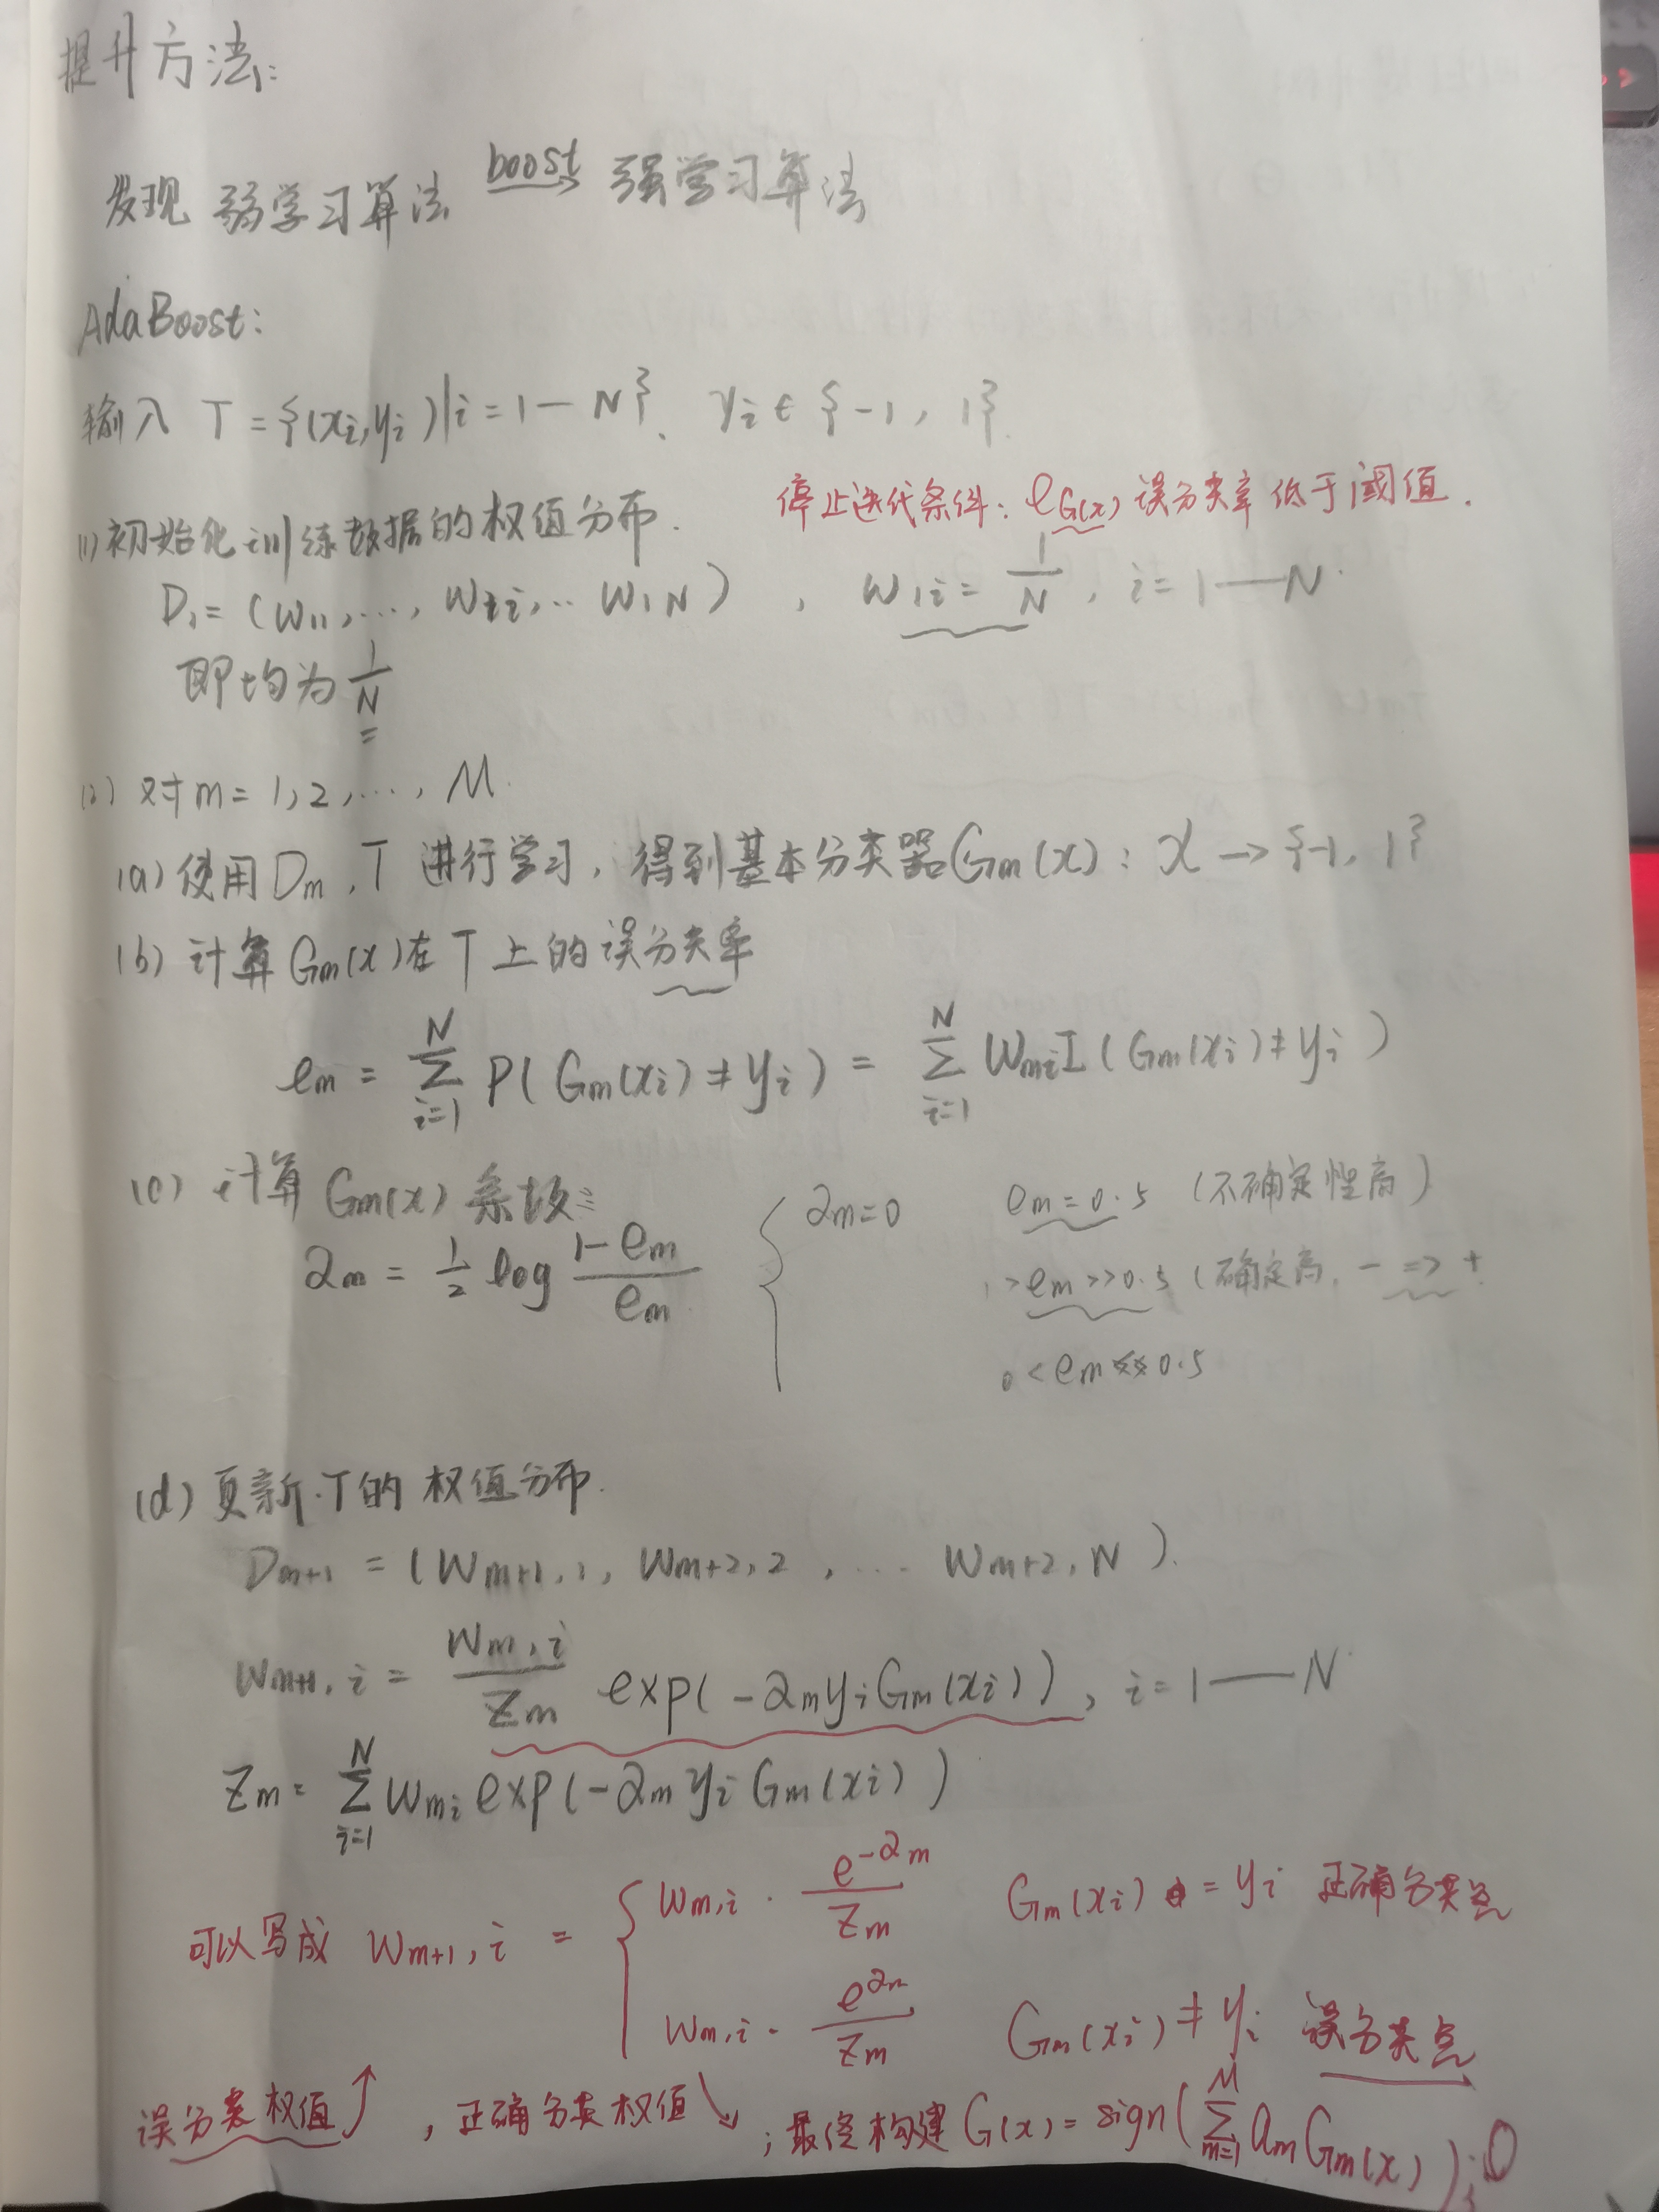 提升方法:
发现 弱学习算法 boost→ 强学习算法
AdaBoost:
输入 T = {(xi, yi) | i = 1 — N}. yi ∈ {-1, 1}.
停止迭代条件: eG(x) 误分类率 低于阈值.
(1) 初始化训练数据的权值分布.
D1 = (W11, ..., W1i, .. W1N), W1i = 1/N, i = 1 — N.
即均为 1/N
(2) 对 m = 1, 2, ..., M.
(a) 使用 Dm, T 进行学习, 得到基本分类器 Gm(x): x → {-1, 1}
(b) 计算 Gm(x) 在 T 上的误分类率
em = Σ_{i=1}^{N} P(Gm(xi) ≠ yi) = Σ_{i=1}^{N} Wmi I(Gm(xi) ≠ yi)
(c) 计算 Gm(x) 系数:
αm = 1/2 log (1-em)/em
{ αm=0 em = 0.5 (不确定性高)
1 > em >> 0.5 (确定高, - => +
0 < em << 0.5
(d) 更新 T 的 权值分布.
Dm+1 = (Wm+1,1, Wm+2,2, ... Wm+2,N).
Wm+1,i = Wm,i/Zm exp(-αm yi Gm(xi)), i = 1 — N.
Zm = Σ_{i=1}^{N} Wmi exp(-αm yi Gm(xi))
可以写成 Wm+1,i = { Wm,i · e^{-αm}/Zm Gm(xi) = yi 正确分类点
Wm,i · e^{αm}/Zm Gm(xi) ≠ yi 误分类点
误分类权值↗, 正确分类权值↘; 最终构建 G(x) = sign(Σ_{m=1}^{M} am Gm(x));